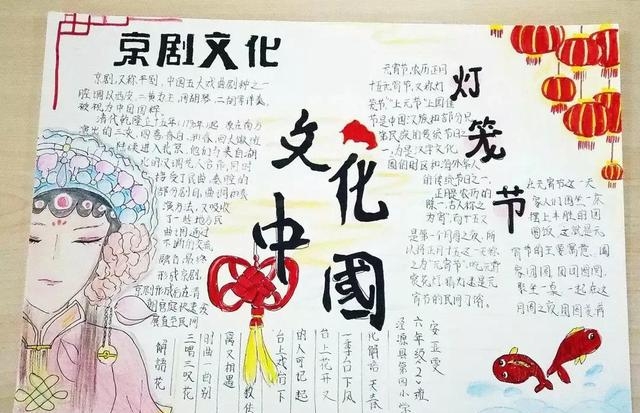 京剧文化
京剧,又称平剧,中国五大戏曲剧种之一
腔调以西皮,二黄为主,用胡琴,二胡等伴奏,
被视为中国国粹
清代乾隆五十五年
演出的三庆,四喜,春台,和春,四大徽班
陆续进入北京,他们与来自湖
北的汉调艺人合作,同时
接受了昆曲,秦腔的
部分剧目,曲调和表
演方法,又吸收
了一些地方民
间曲调,通过
不断的交流,
融合,最终
形成京剧,
京剧形成后在清
朝宫廷快速发
展直至民间
文化中國
灯笼节
元宵节,农历正月
十五元宵节,又称灯
是中国汉族和部分兄
弟民族的传统节日之
一,为是汉字文化
圈的地区和海外华人
的传统节日之一,
正月是农历的
元月,古人称之
为宵,而十五又
是第一个月圆之夜,所
以将正月十五这一天称
之为元宵节,吃元宵
赏花灯,猜灯谜是元
宵节的民间习俗。
在元宵节这一天
家人们围坐一桌
摆上丰盛的团
圆饭,这就是元
宵节的主要寓意,团
家团圆,团团圆圆,
聚坐一桌,一起在这
安亚雯
六年级(2)班
泾源县第四小学
一季台下风
台上花开又
台上戏台下
的人可记起
离又相遇
三唱三叹花
解語花